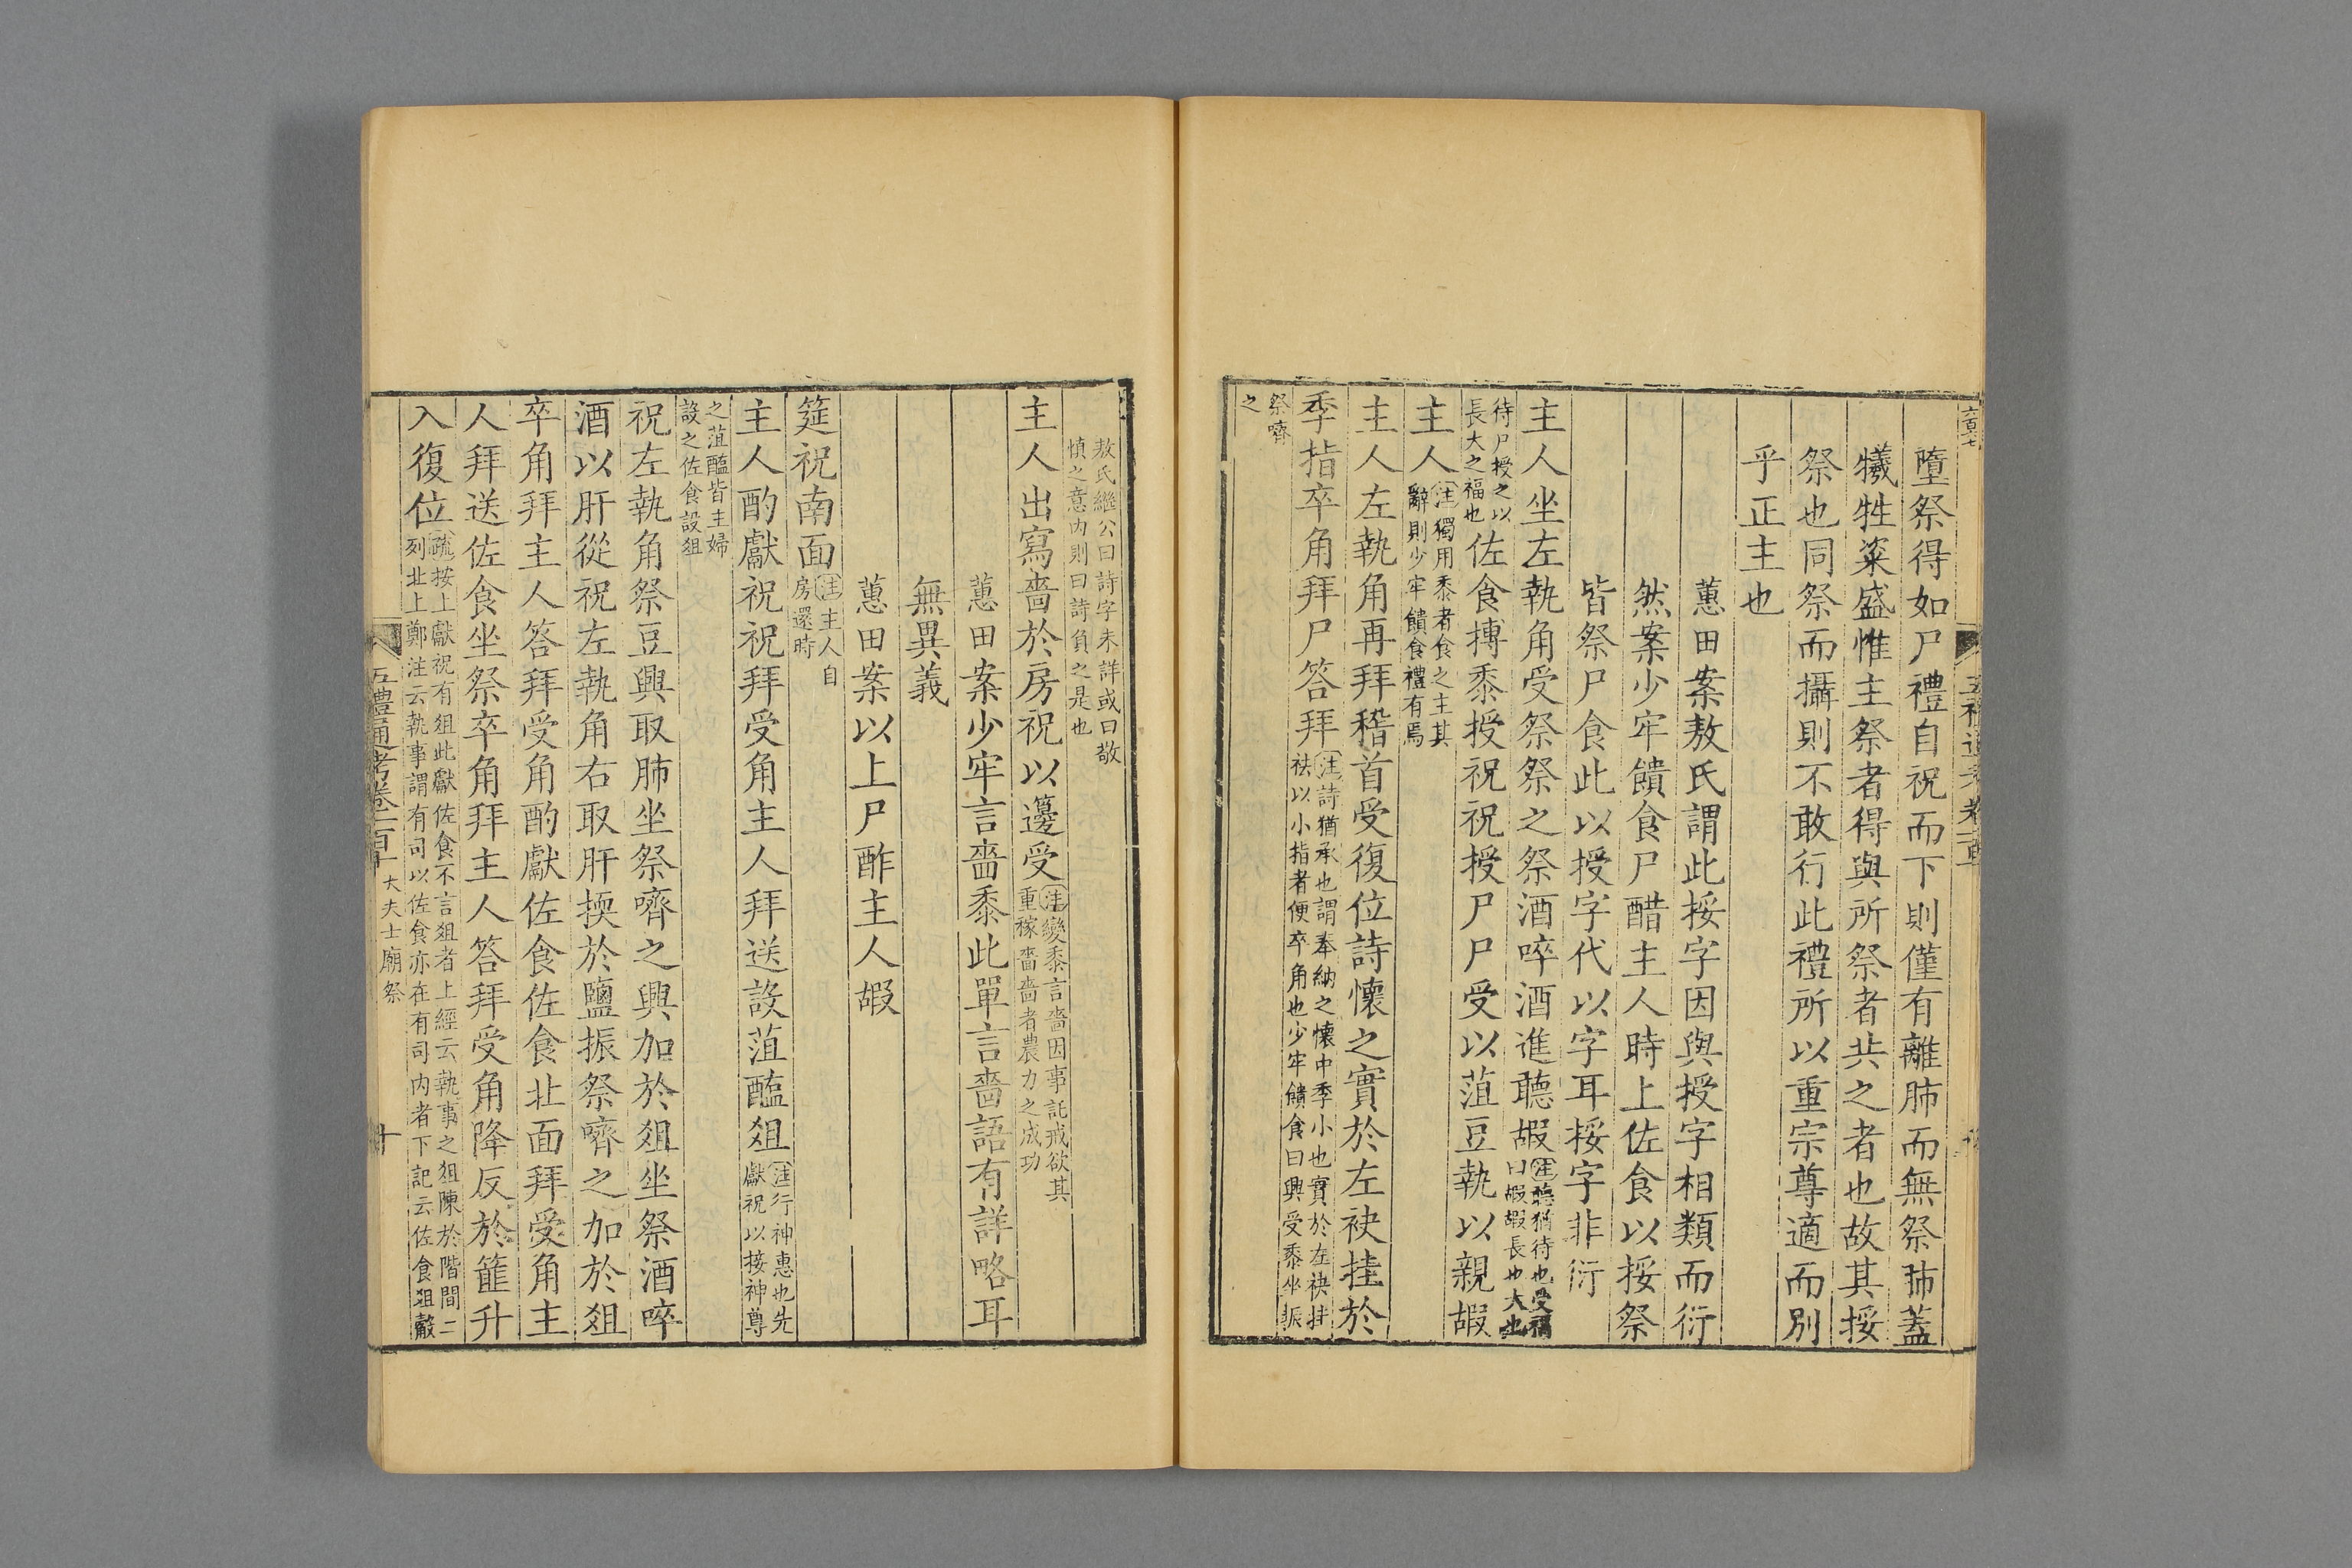 墮祭得如尸禮自祝而下則僅有離肺而無祭肺蓋
犧牲粢盛惟主祭者得與所祭者共之者也故其挼
祭也同祭而攝則不敢行此禮所以重宗尊適而別
乎正主也
蕙田案敖氏謂此挼字因與授字相類而衍
然案少牢饋食尸醋主人時上佐食以挼祭
皆祭尸食此以授字代以字耳挼字非衍
主人坐左執角受祭祭之祭酒啐酒進聽嘏注聽猶待也受福曰嘏嘏長也大也
待尸授之以長大之福也佐食摶黍授祝祝授尸尸受以菹豆執以親嘏
主人注獨用黍者食之主其辭則少牢饋食禮有焉
主人左執角再拜稽首受復位詩懷之實於左袂挂於
季指卒角拜尸答拜注詩猶承也謂奉納之懷中季小也實於左袂挂袪以小指者便卒角也少牢饋食曰興受黍坐振
祭嚌之
敖氏繼公曰詩字未詳或曰敬慎之意內則曰詩負之是也
主人出寫嗇於房祝以籩受注變黍言嗇因事託戒欲其重稼嗇嗇者農力之成功
蕙田案少牢言嗇黍此單言嗇語有詳略耳
無異義
蕙田案以上尸酢主人嘏
筵祝南面注主人自房還時
主人酌獻祝祝拜受角主人拜送設菹醢俎注行神惠也先獻祝以接神尊
之菹醢皆主婦設之佐食設俎
祝左執角祭豆興取肺坐祭嚌之興加於俎坐祭酒啐
酒以肝從祝左執角右取肝擩於鹽振祭嚌之加於俎
卒角拜主人答拜受角酌獻佐食佐食北面拜受角主
人拜送佐食坐祭卒角拜主人答拜受角降反於篚升
入復位疏按上獻祝有俎此獻佐食不言俎者上經云執事之俎陳於階間二列北上鄭注云執事謂有司以佐食亦在有司內者下記云佐食俎觳
五禮通考卷一百十 大夫士廟祭